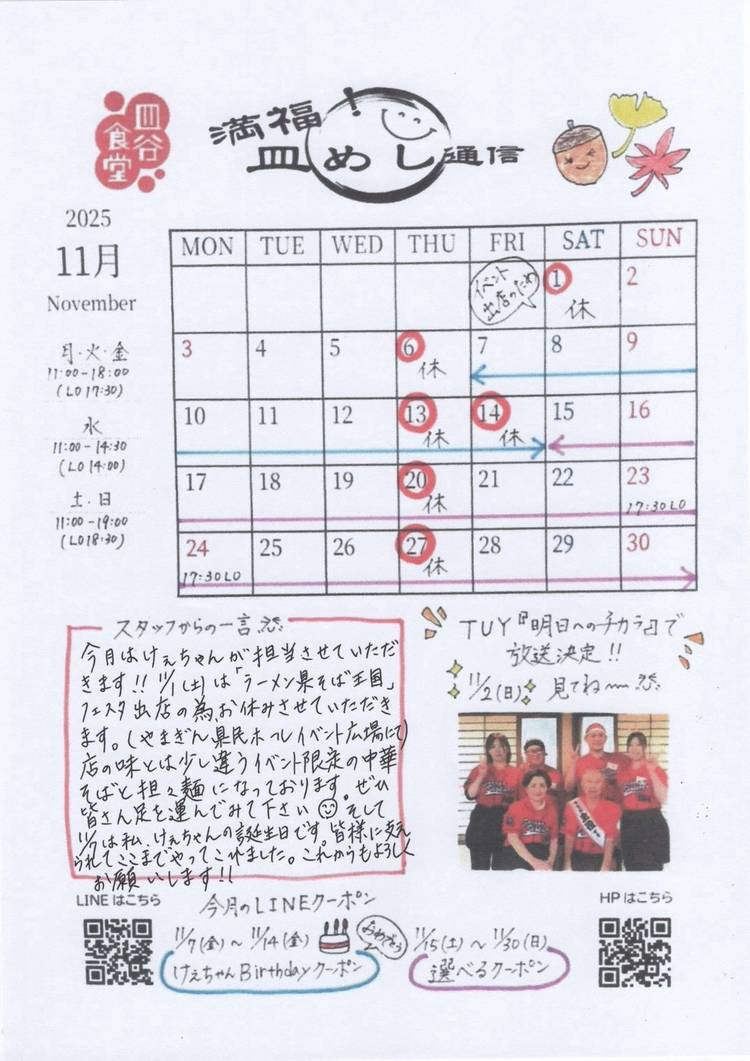 皿谷食堂
満福!
皿めし通信
2025
11月
November
月・火・金
11:00-18:00
(LO17:30)
水
11:00-14:30
(LO14:00)
土・日
11:00-19:00
(LO18:30)
MON TUE WED THU FRI SAT SUN
イベント
出店のため
1 2
休
3 4 5 6 7 8 9
休
10 11 12 13 14 15 16
休 休
17 18 19 20 21 22 23
休 17:30LO
24 25 26 27 28 29 30
17:30LO 休
スタッフからの一言
今月はけぇちゃんが担当させていただ
きます!! 11/1(土)は「ラーメン県そば王国」
フェスタ出店の為、お休みさせていただき
ます。(やまぎん県民ホールイベント広場にて)
店の味とは少し違うイベント限定の中華
そばと担々麺になっております。ぜひ
皆さん足を運んでみて下さい そして
11/7は私、けぇちゃんの誕生日です。皆様に支え
られてここまでやってこれました。これからもよろしく
お願いします!!
TUY『明日へのチカラ』で
放送決定!!
11/2(日) 見てね〜
LINEはこちら
HPはこちら
今月のLINEクーポン
11/7(金)〜11/14(金)
けぇちゃんBirthdayクーポン
11/15(土)〜11/30(日)
選べるクーポン